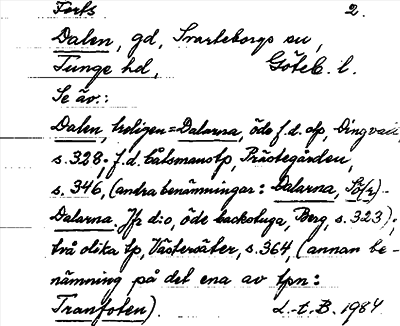 Forts 2.
Dalen, gd, Svarteborgs sn,
Tunge hd, Göteb. l.
Se äv.:
Dalen, troligen = Dalarna, öde f.d. slp, Dingvall,
s. 328. f.d. båtsmanstp, Prästegården,
s. 346, (andra benämningar: Dalarna, Sö(r)-
Dalarna. Jfr d:o, öde backstuga, Berg, s. 323);
två olika tp, Västeräter, s. 364, (annan be-
nämning på det ena av tpn:
Tranfoten). L.-t. B. 1984